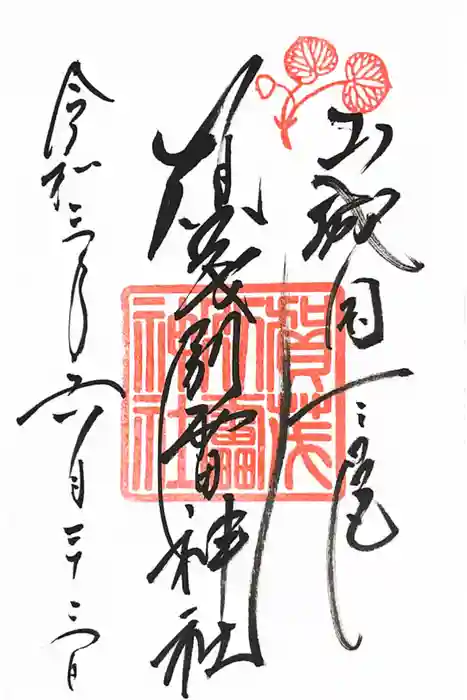 山城国一之宮
賀茂別雷神社
令和三年六月二十三日
賀茂
別雷
神社